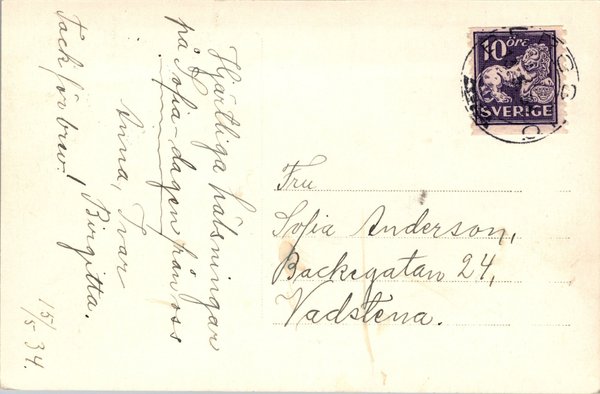 Hjärtliga hälsningar
på Sofia-dagen från oss
Anna, Ivar
Birgitta.
Tack för brev!
15/5 34.
10 öre
SVERIGE
Fru
Sofia Anderson,
Backegatan 24,
Vadstena.